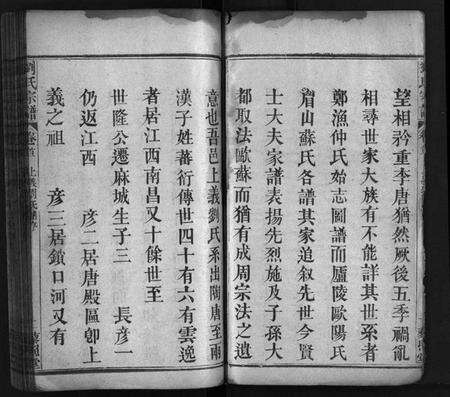 望相矜重李唐猶然厥後五季禍亂
相尋世家大族有不能詳其世系者
鄭漁仲氏始志圖譜而廬陵歐陽氏
眉山蘇氏各譜其家追叙先世今賢
士大夫家譜表揚先烈施及子孫大
都取法歐蘇而猶有成周宗法之遺
意也吾邑上義劉氏系出陶唐至兩
漢子姓蕃衍傳世四十有六有雲逸
者居江西南昌又十餘世至
世隆公遷麻城生子三　長彥一
仍返江西　彥二居唐殿區卽上
義之祖　彥三居鎖口河又有
劉氏宗譜
卷首